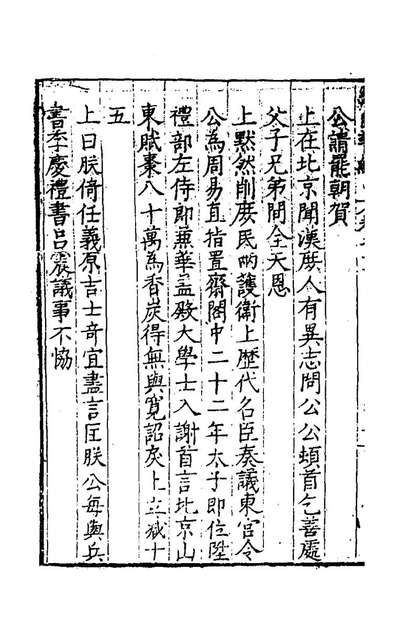 公請罷朝賀
上在北京聞漢庶人有異志問公公頓首乞善處
父子兄弟間全天恩
上黙然削庶民兩護衛上歷代名臣奏議東宮令
公為周易直指置齋閣中二十二年太子即位陞
禮部左侍郎兼華盖殿大學士入謝首言北京山
東賦棗八十萬為香炭得無與寬詔戾上立減十
五
上曰朕倚任義原吉士奇宜盡言匡朕公每與兵
書李慶禮書呂震議事不恊